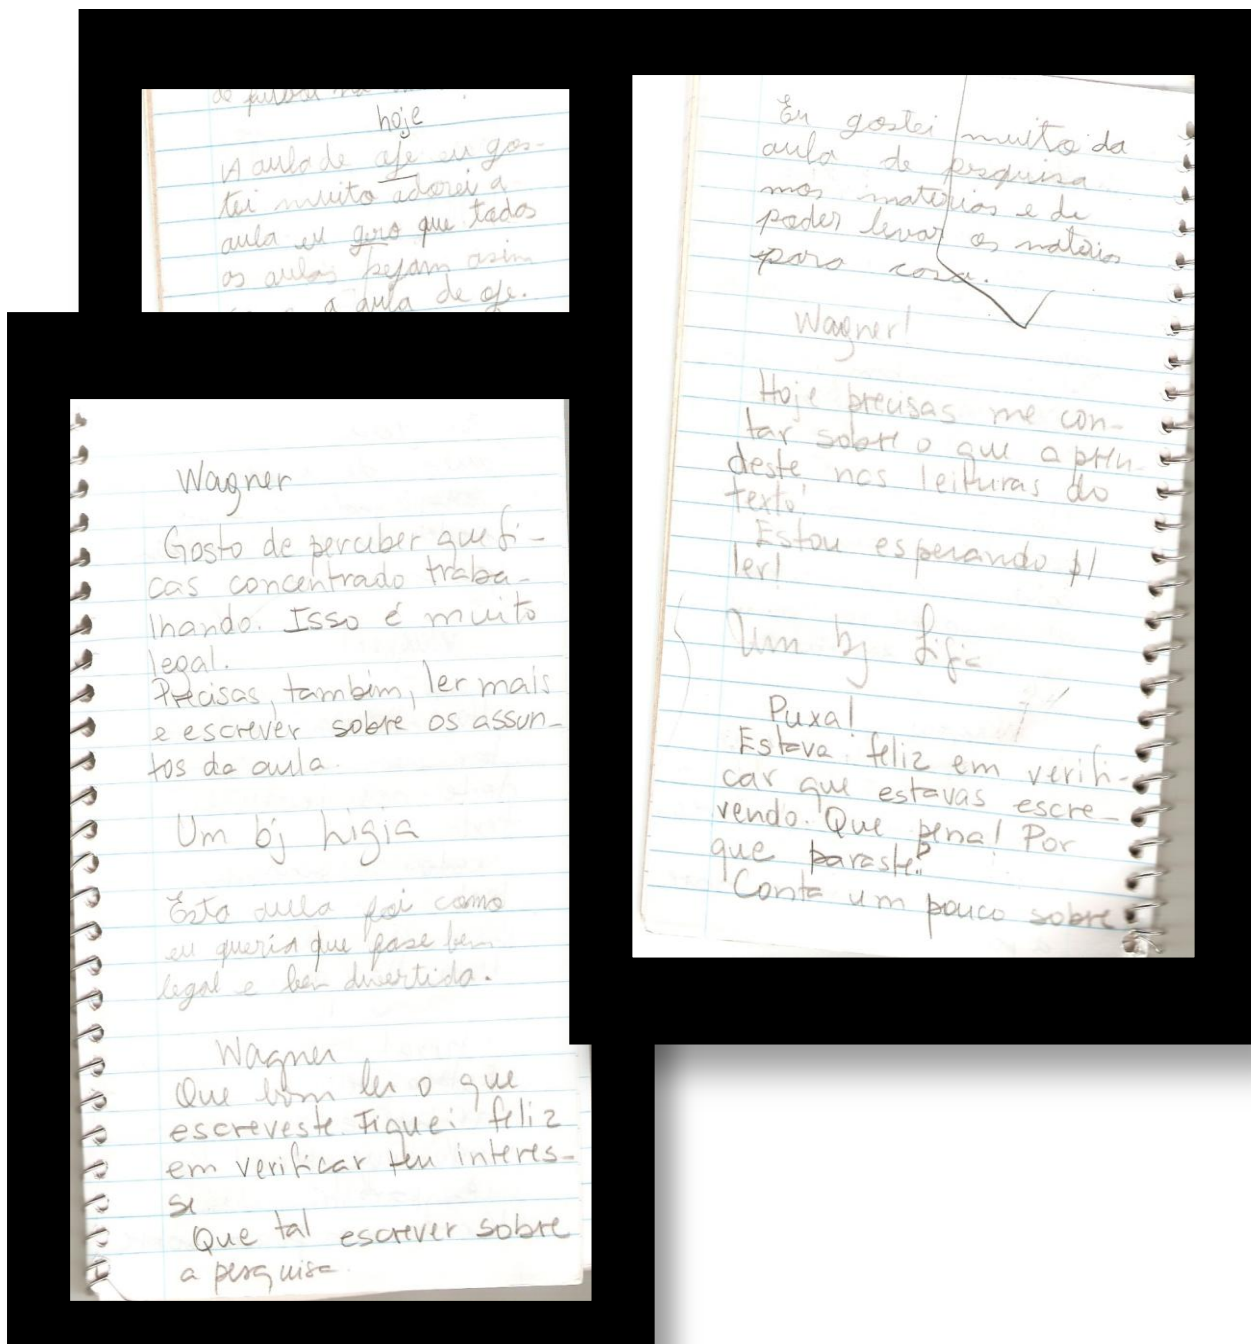 hoje
A aula de oje eu gos-
tei muito adorei a
aula eu gero que todas
as aulas sejam asim
a aula de oje.
Wagner
Gosto de perceber que fi-
cas concentrado traba-
lhando. Isso é muito
legal.
Precisas, também, ler mais
e escrever sobre os assun-
tos da aula.
Um bj Ligia
Esta aula foi como
eu queria que fose bem
legal e ben divertida.
Wagner
Que bom ler o que
escreveste. Fiquei feliz
em verificar teu interes-
se
Que tal escrever sobre
a pesquisa.
Eu gostei muito da
aula de pesquisa
mos matérias e de
poder levar os matérias
para casa.
Wagner!
Hoje precisas me con-
tar sobre o que apren-
deste nas leituras do
texto!
Estou esperando p/
ler!
Um bj Ligia
Puxa!
Estava feliz em verifi-
car que estavas escre-
vendo. Que pena! Por
que paraste?
Conta um pouco sobre